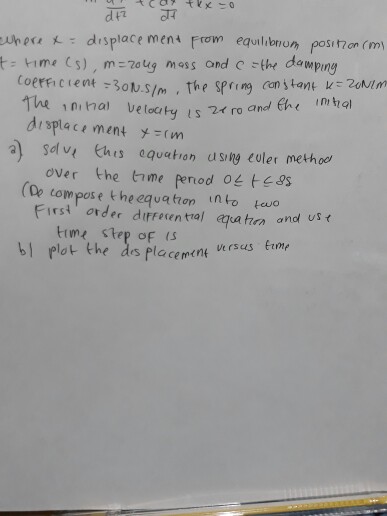 d²x/dt² + c dx/dt + kx = 0
where x = displacement from equilibrium position (m)
t = time (s), m = 20kg mass and c = the damping
coefficient = 30N.s/m, the spring constant k = 20N/m
The initial velocity is zero and the initial
displacement x = 1m
a) solve this equation using euler method
over the time period 0 ≤ t ≤ 8s
(Decompose the equation into two
First order differential equation and use
time step of 1s
b) plot the displacement versus time